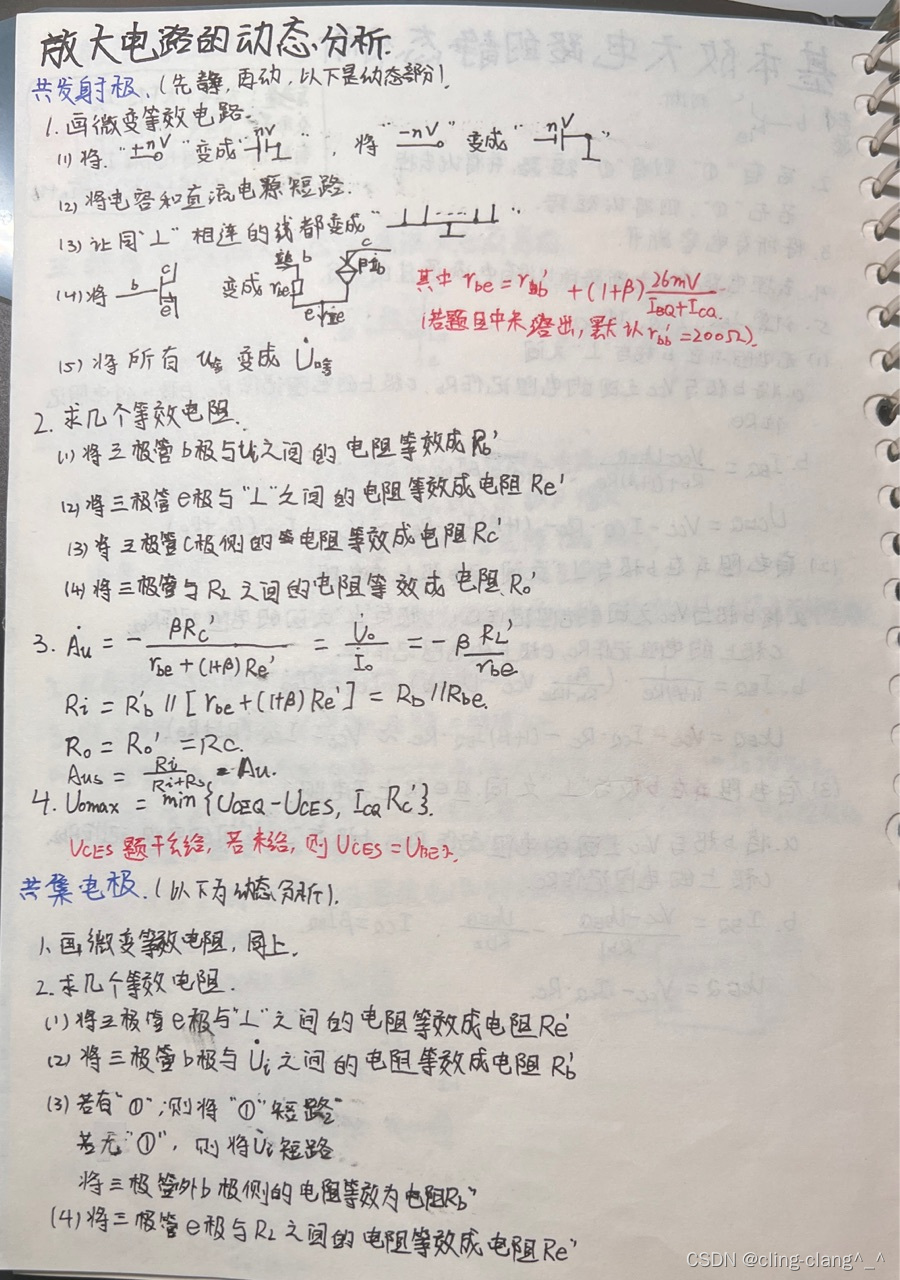 放大电路的动态分析.
共发射极.(先静,再动,以下是动态部分).
1.画微变等效电路.
(1)将"+nV"变成"nV",将"-nV"变成"-nV"
(2)将电容和直流电源短路.
(3)让同"⊥"相连的线都变成" "
(4)将 b c e 变成 b rbe e c
其中 rbe = rbb' + (1+β) 26mV / IBQ+ICQ.
(若题目中未给出,默认rbb'=200Ω).
(5)将所有 u啥 变成 U̇啥
2.求几个等效电阻.
(1)将三极管b极与Ui之间的电阻等效成Rb'
(2)将三极管e极与"⊥"之间的电阻等效成电阻Re'
(3)将三极管C极侧的电阻等效成电阻Rc'
(4)将三极管与RL之间的电阻等效成电阻Ro'
3. Ȧu = - βRc' / rbe+(1+β)Re' = U̇o / İo = -β RL' / rbe.
Ri = Rb' // [rbe+(1+β)Re'] = Rb//Rbe.
Ro = Ro' = Rc.
Aus = Ri / Ri+Rs · Au.
4. Uomax = min{UCEQ-UCES, ICQRc'}.
UCES题干会给,若未给,则UCES=UBEQ.
共集电极.(以下为动态分析).
1.画微变等效电阻,同上.
2.求几个等效电阻.
(1)将三极管e极与"⊥"之间的电阻等效成电阻Re'
(2)将三极管b极与U̇i之间的电阻等效成电阻Rb'
(3)若有"①",则将"①"短路"
若无"①",则将U̇i短路
将三极管外b极侧的电阻等效为电阻Rb"
(4)将三极管e极与RL之间的电阻等效成电阻Re"
CSDN @cling-clang^_^